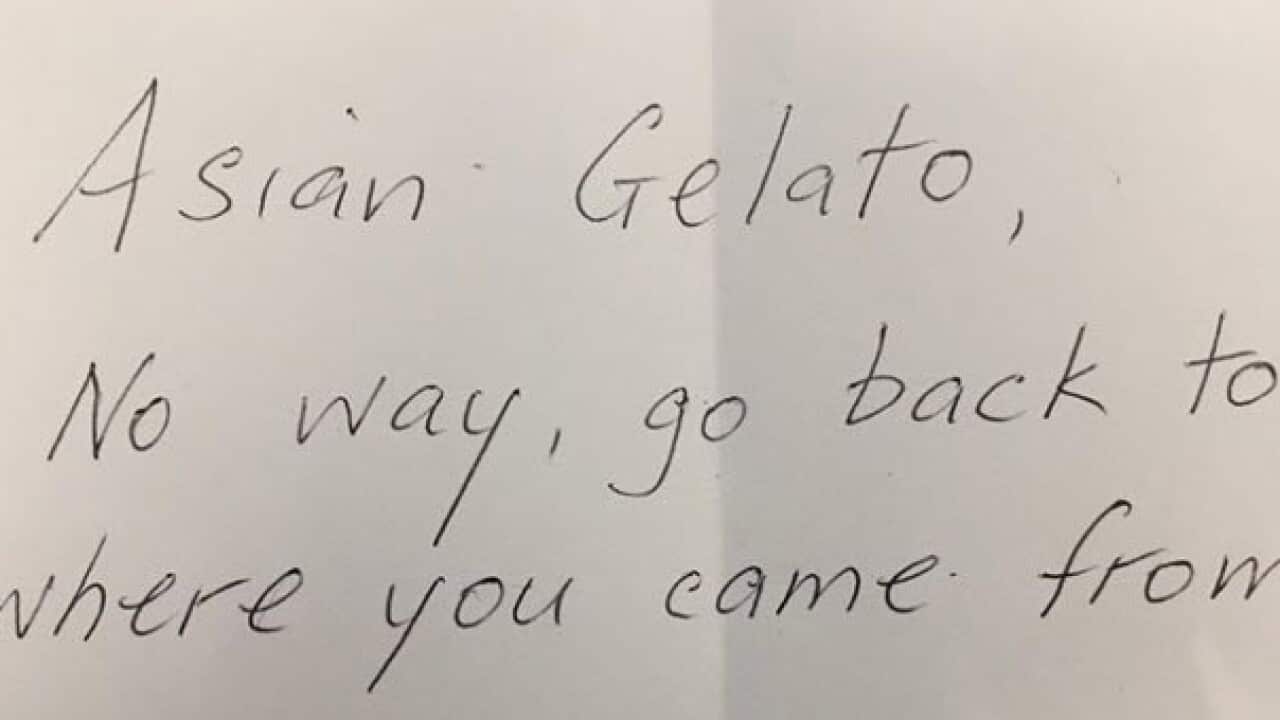 Asian Gelato,
No way, go back to
where you came from